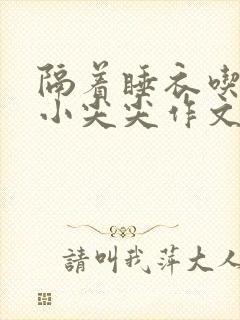 隔着睡衣喫
小尖尖作文
請叫我萍大人